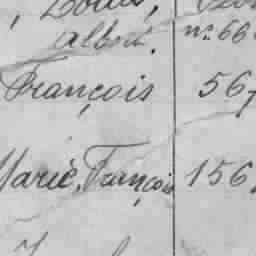 , Louis,
Albert. n: 66
François 567
Marie, François 156